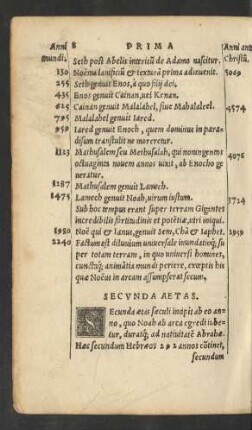 Anni mundi. 8 PRIMA Anni ante Christū.
Seth post Abelis interitū de Adamo nascitur.
130 Noëma lanificiū & texturā prima adinuenit. 5069
235 Seth genuit Enos, à quo filij dei,
435 Enos genuit Cainan, uel Kenan.
625 Cainan genuit Malalahel, siue Mahalaleel. 4574
795 Malalahel genuit Iared.
959 Iared genuit Enoch, quem dominus in para-
disum transtulit ne moreretur.
1123 Mathusalem seu Methusalah, qui nongenteros 4076
octuaginta nouem annos uixit, ab Enocho ge
neratur.
1287 Mathusalem genuit Lamech.
1475 Lamech genuit Noah, uirum iustum. 3724
Sub hoc tempus erant super terram Gigantes
incredibili fortitudinis et potētiæ, atri iniqui.
1980 Noë qui & Ianus, genuit Sem, Chā & Iaphet. 3219
2240 Factum est diluuium uniuersale inundatiōq; su
per totam terram, in quo uniuersi homines,
cunctáq; animātia mundi periere, exceptis his
quæ Noëus in arcam assumpserat secum.
SECVNDA AETAS.
SEcunda ætas sæculi incipit ab eo an-
no, quo Noah ab arca egredi iubе-
tur, duratq; ad natiuitatē Abrahæ.
Hæc secundum Hebræos 292 annos cōtinet,
secundum